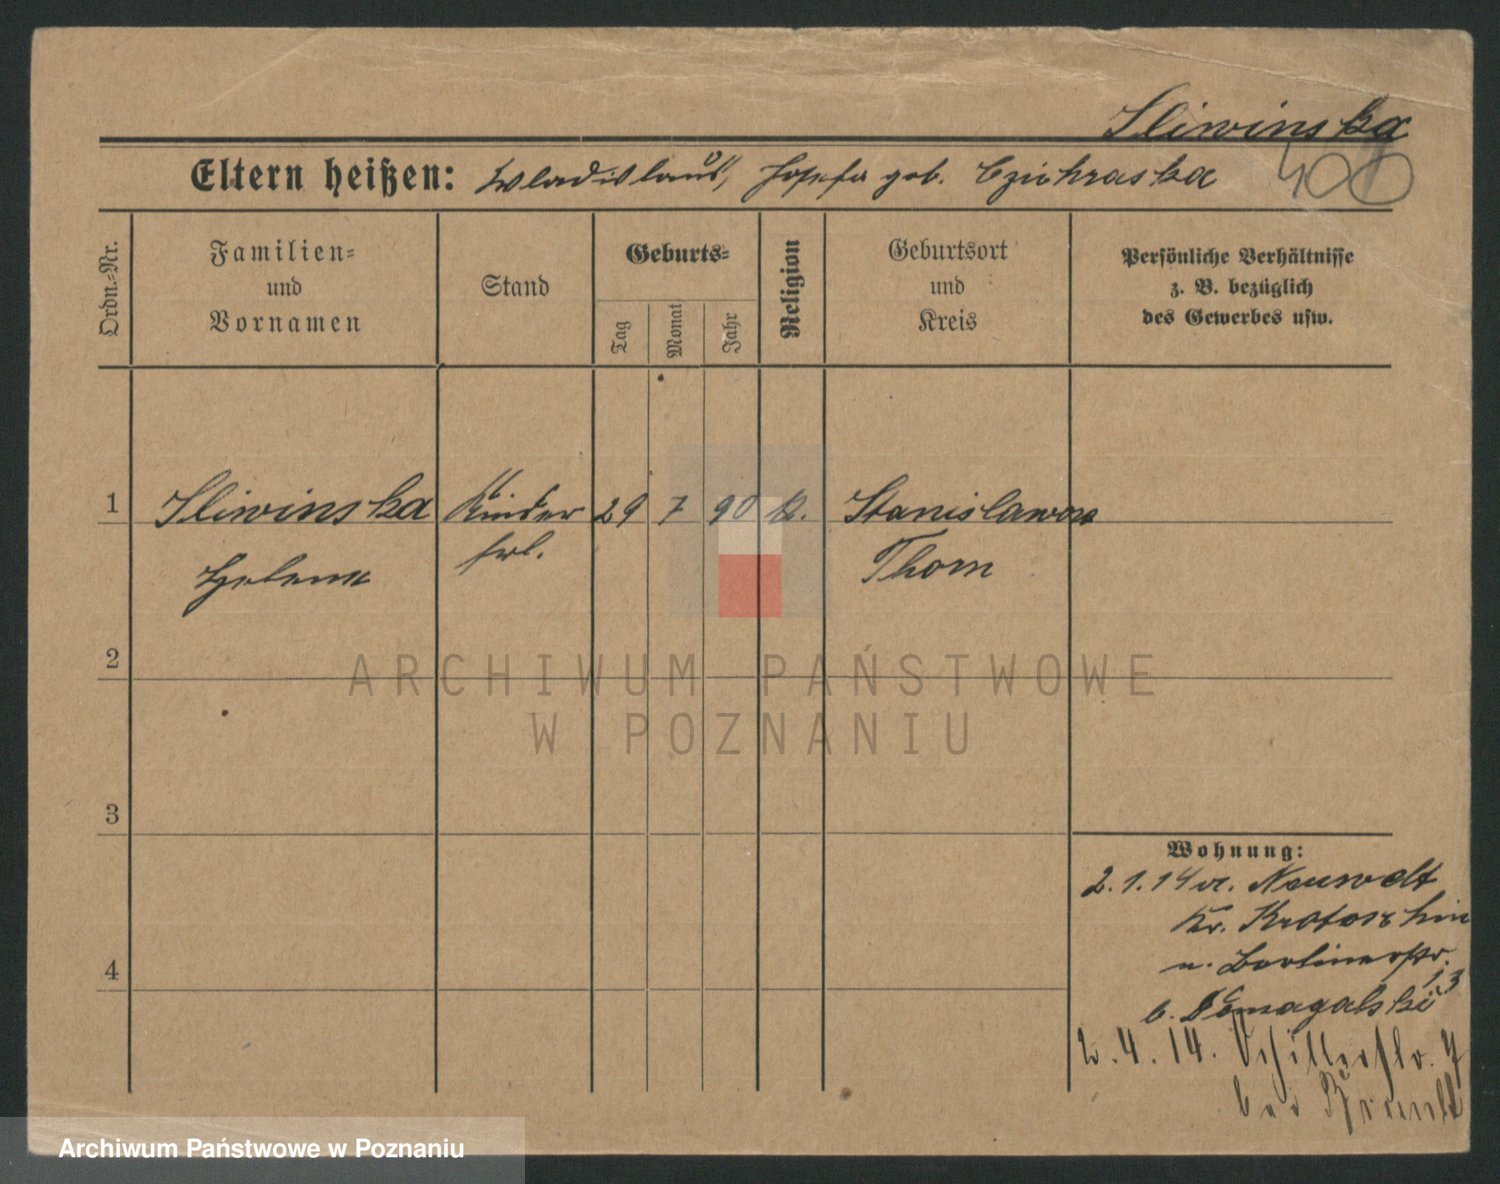 Sliwinska
Eltern heißen: Wladislaus, Josefa geb.
400
Ordn.-Nr.
Familien-
und
Vornamen
Stand
Geburts-
Tag
Monat
Jahr
Religion
Geburtsort
und
Kreis
Persönliche Verhältnisse
z. B. bezüglich
des Gewerbes usw.
1 Sliwinska Kinder 29 7 90 k. Stanislawowo
Helena frl. Thorn
2
ARCHIWUM PAŃSTWOWE
W POZNANIU
3
Wohnung:
2.1.14 v.
Kr. Krotoschin
n. Berlinerstr.
13
b. Domagalski
2.4.14. Schillerstr. 7
bei Brandt
4
Archiwum Państwowe w Poznaniu